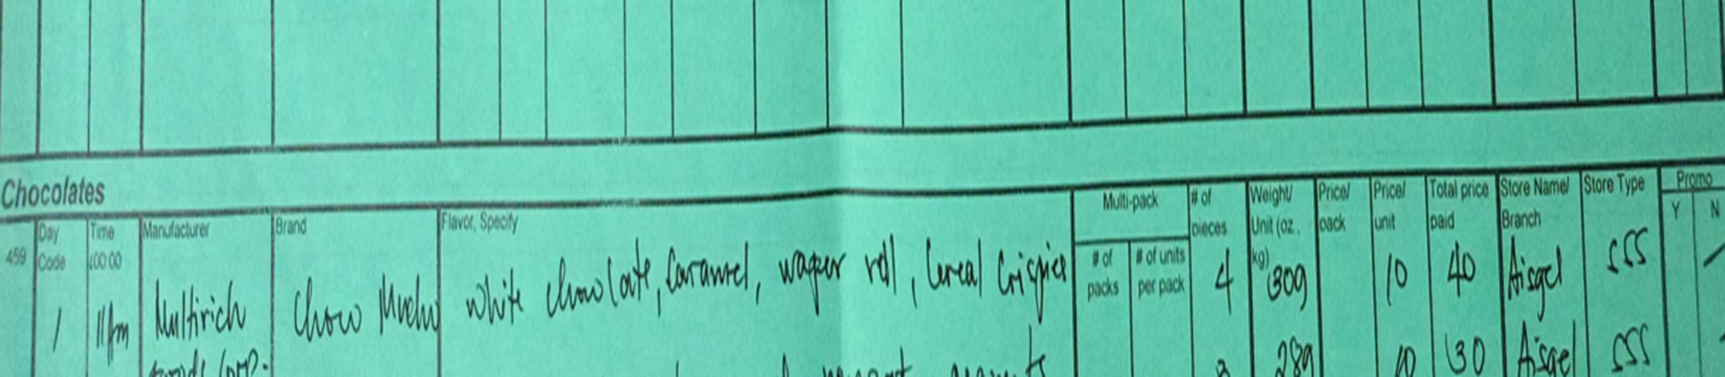 Chocolates
459 Day Code Time (00:00 Manufacturer Brand Flavor, Specify Multi-pack # of packs # of units per pack # of pieces Weight/ Unit (oz., kg) Price/ pack Price/ unit Total price paid Store Name/ Branch Store Type Promo Y N
1 11pm Multirich Choco Mucho white chocolate, Caramel, wafer roll, Cereal Crispies 4 30g 10 40 Aisgel SSS
28g 10 30 Aisgel SSS